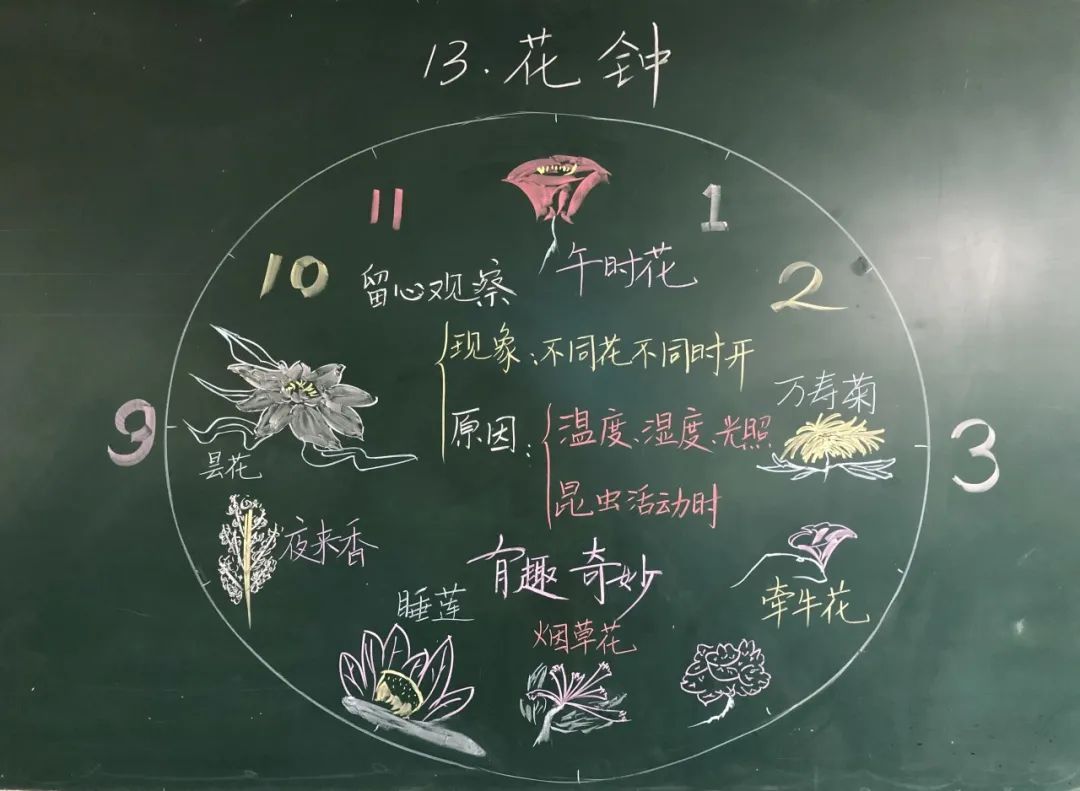 13.花钟
11
1
10
2
留心观察
午时花
现象:不同花不同时开
万寿菊
原因:
温度、湿度、光照
9
3
昙花
昆虫活动时
夜来香
有趣奇妙
睡莲
牵牛花
烟草花